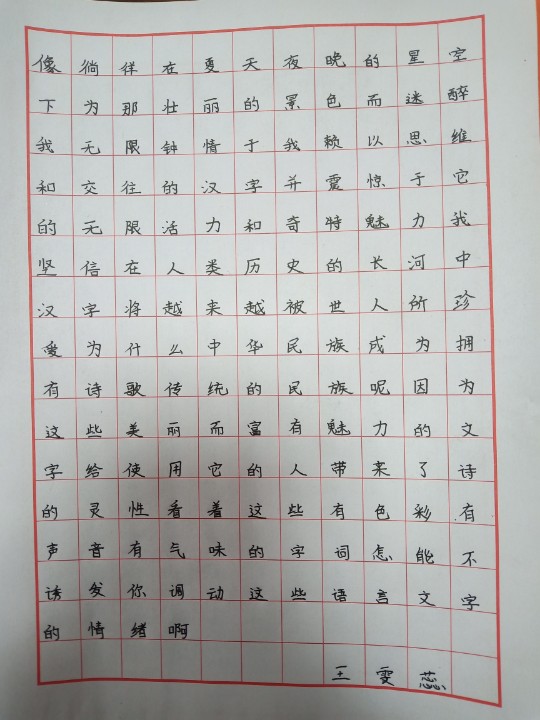 像徜徉在夏天夜晚的星空
下为那壮丽的景色而迷醉
我无限钟情于我赖以思维
和交往的汉字并震惊于它
的无限活力和奇特魅力我
坚信在人类历史的长河中
汉字将越来越被世人所珍
爱为什么中华民族成为拥
有诗歌传统的民族呢因为
这些美丽而富有魅力的文
字给使用它的人带来了诗
的灵性看着这些有色彩有
声音有气味的字词怎能不
诱发你调动这些语言文字
的情绪啊
王雯蕊